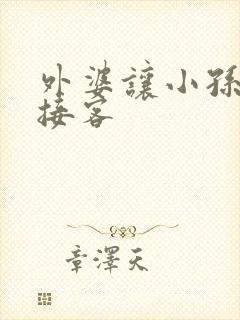 外婆讓小孫
接客
章澤天